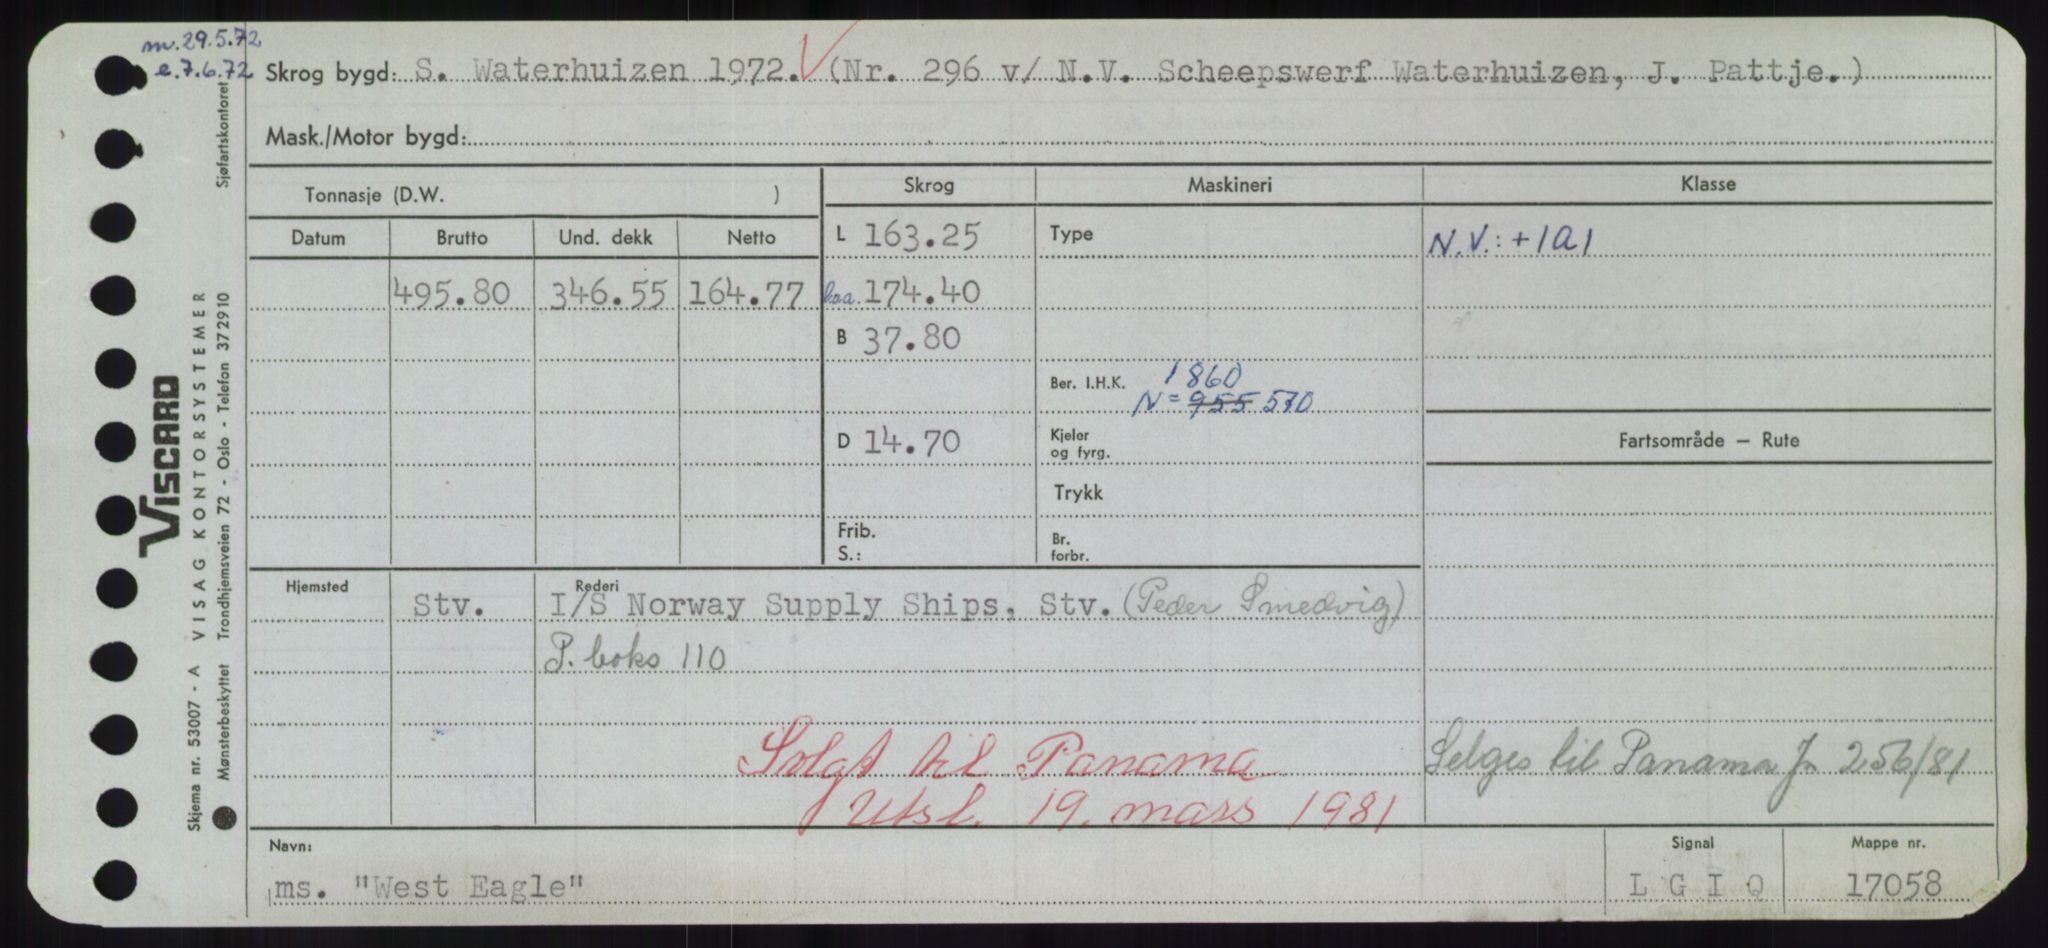 m. 29.5.72
e. 7.6.72
Skrog bygd: S. Waterhuizen 1972. V (Nr. 296 v/ N.V. Scheepswerf Waterhuizen, J. Pattje.)
Mask./Motor bygd:
Tonnasje (D.W. )
Skrog Maskineri Klasse
Datum Brutto Und. dekk Netto
L 163.25 Type N.V.: +1A1
495.80 346.55 164.77 l.o.a. 174.40
B 37.80
Ber. I.H.K. 1860
N = 955 570
D 14.70 Kjeler og fyrg. Fartsområde — Rute
Trykk
Frib. S.: Br. forbr.
Hjemsted Rederi
Stv. I/S Norway Supply Ships, Stv. (Peder Smedvig)
P. boks 110
Solgt til Panama Selges til Panama Jn 256/81
Utsl. 19. mars 1981
Navn: Signal Mappe nr.
ms. "West Eagle" L G I Q 17058
VISCARD
Skjema nr. 53007 - A VISAG KONTORSYSTEMER
Mønsterbeskyttet Trondhjemsveien 72 - Oslo - Telefon 372910 Sjøfartskontoret